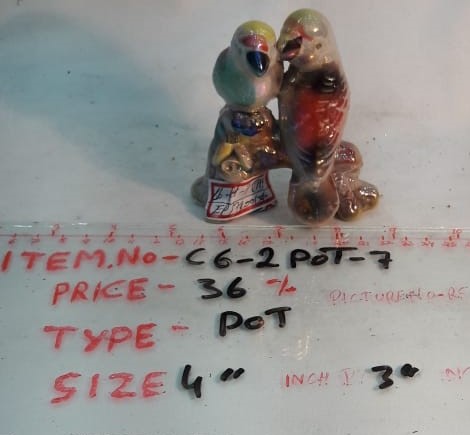 ITEM.No-C6-2 POT-7
PRICE- 36 %
TYPE- POT
SIZE 4" INCH 3"